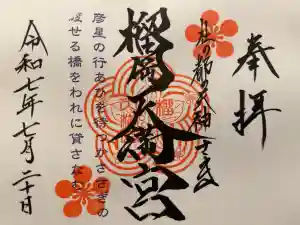 奉拝
杜の都天神さま
榴岡天満宮
彦星の行あひを待つかささぎの
渡せる橋をわれに貸さなむ
令和七年七月二十日